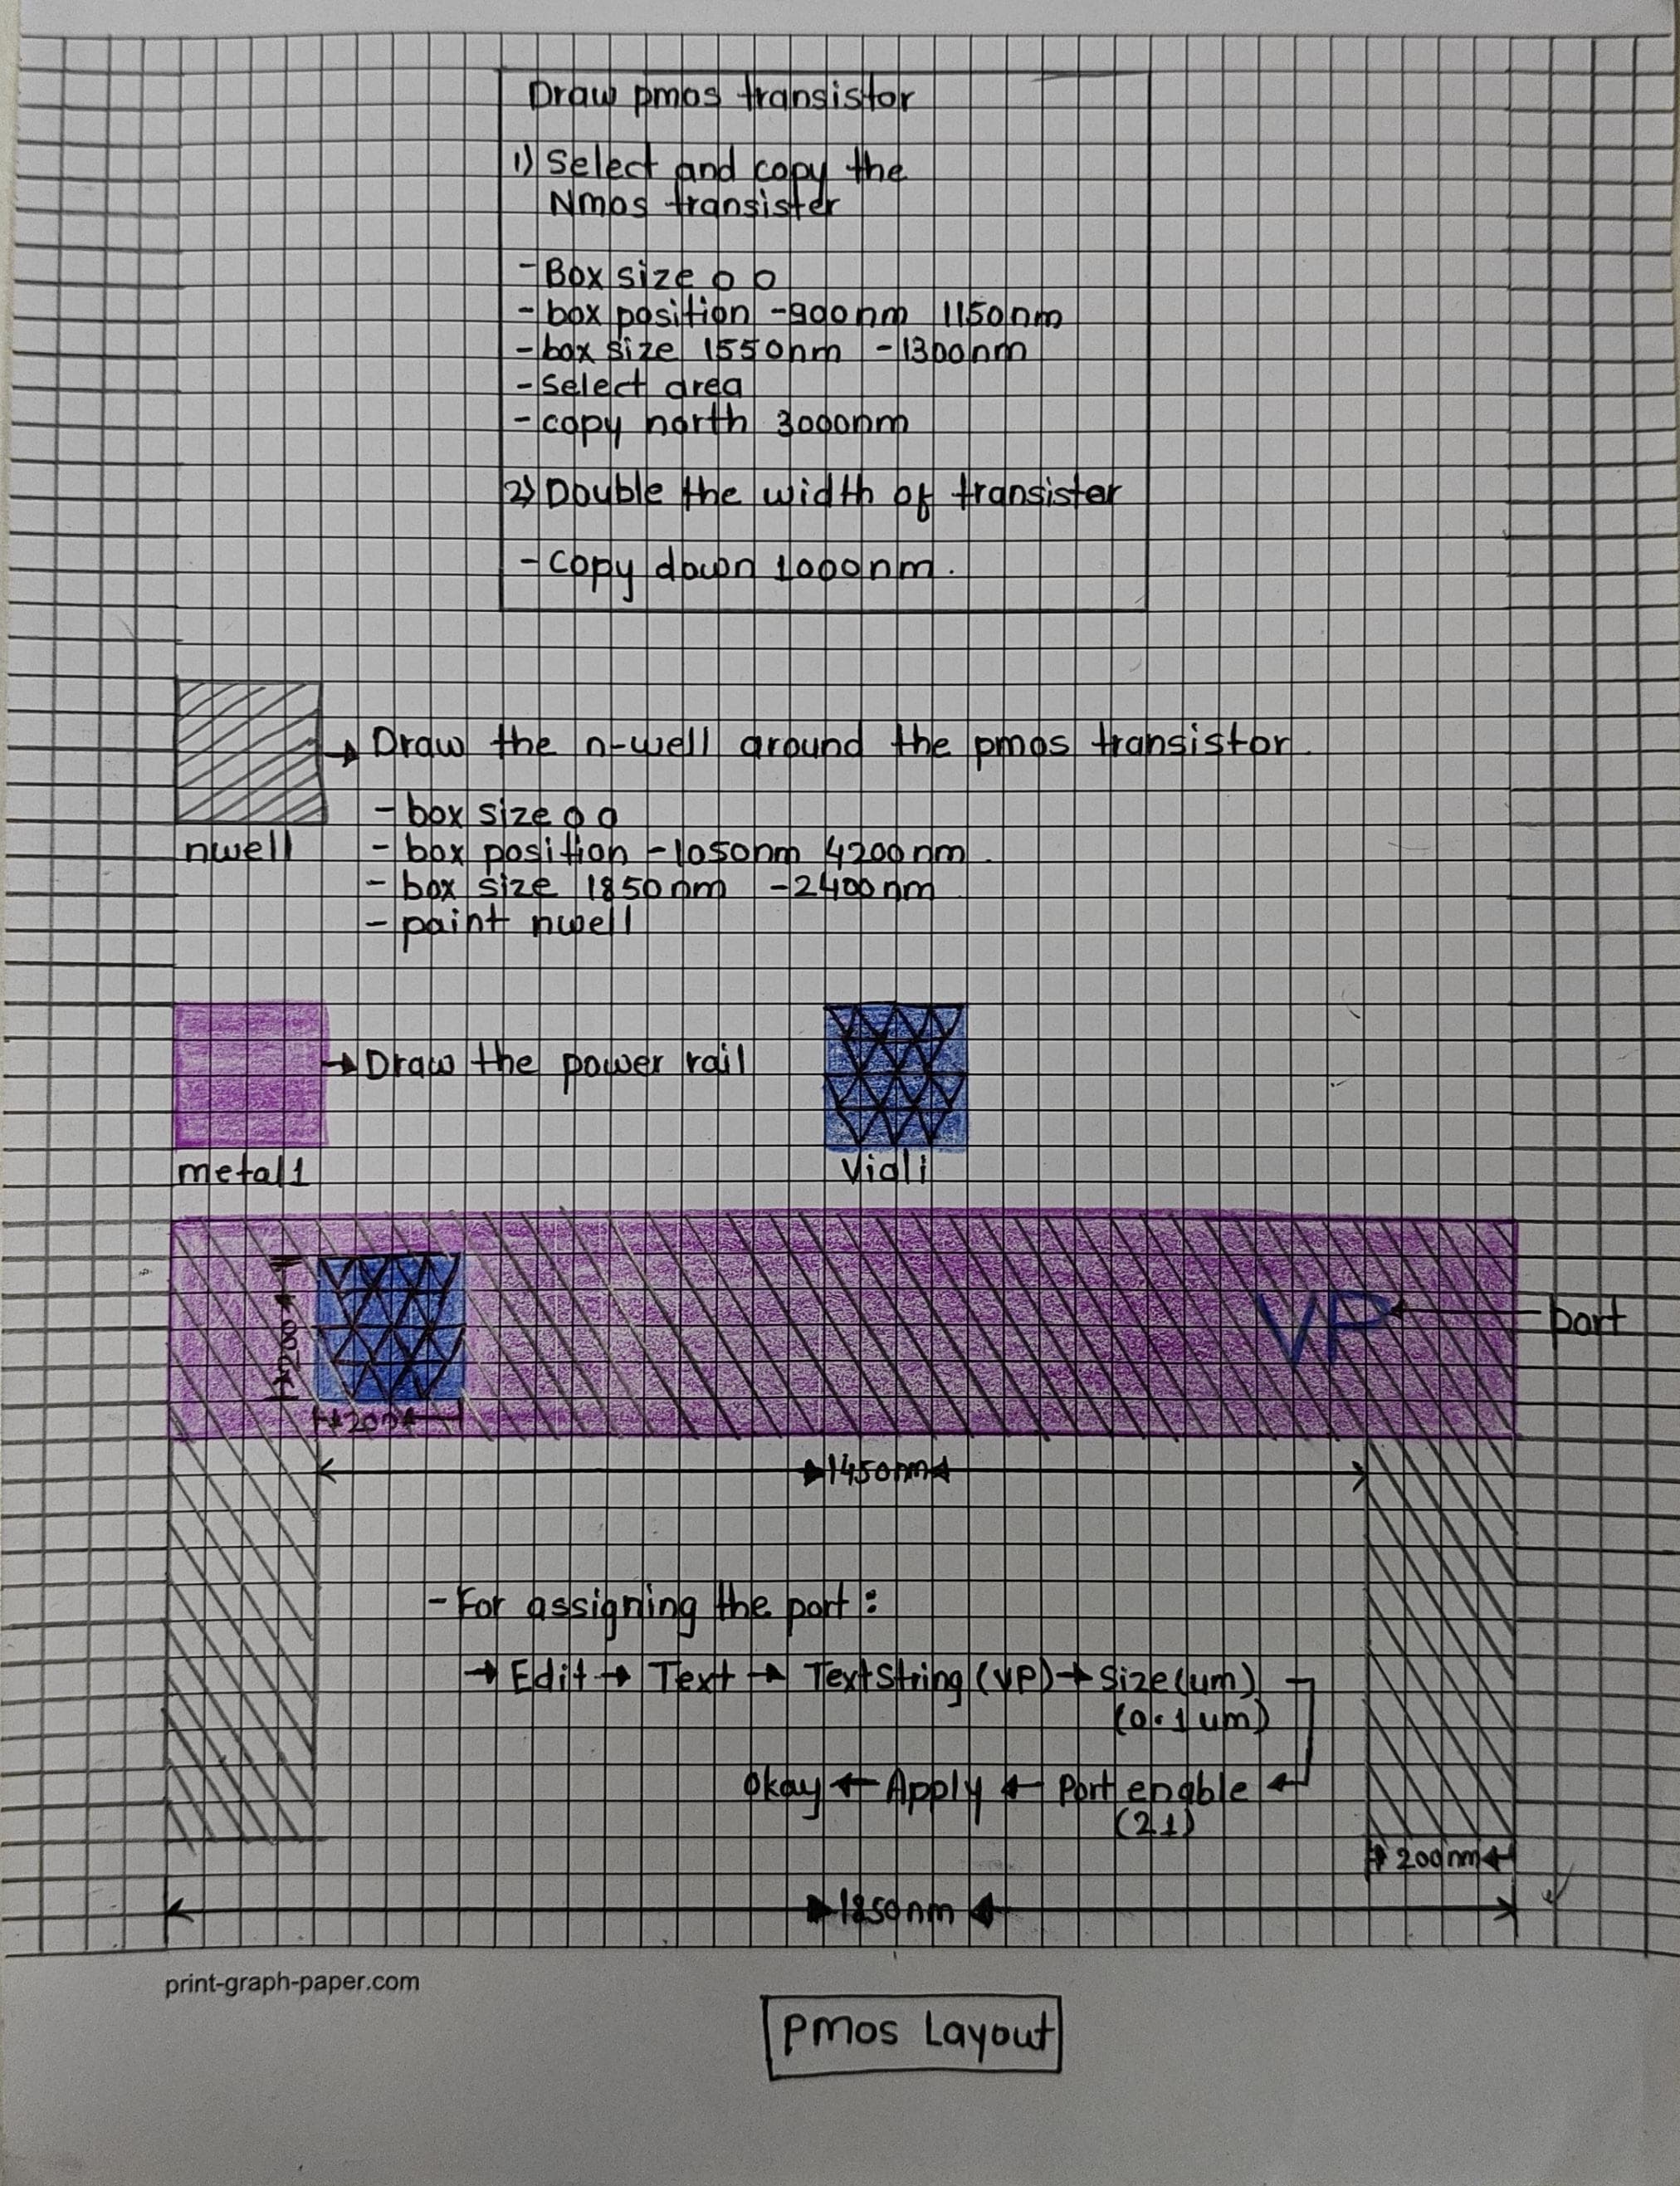 Draw pmos transistor
1) Select and copy the
Nmos transister
- Box size 0 0
- box position -900nm 1150nm
- box size 1550nm -1300nm
- Select area
- copy north 3000nm
2) Double the width of transister
- Copy down 1000nm.
→ Draw the n-well around the pmos transistor.
nwell
- box size 0 0
- box position -1050nm 4200nm.
- box size 1850nm -2400nm
- paint nwell
→ Draw the power rail
metal1
Viali
VP
port
200
1450nm
- For assigning the port:
→ Edit → Text → TextString (VP) → Size (um)
(0.1um)
Okay ← Apply ← Port enable ←
(21)
200nm
1850nm
print-graph-paper.com
pmos Layout